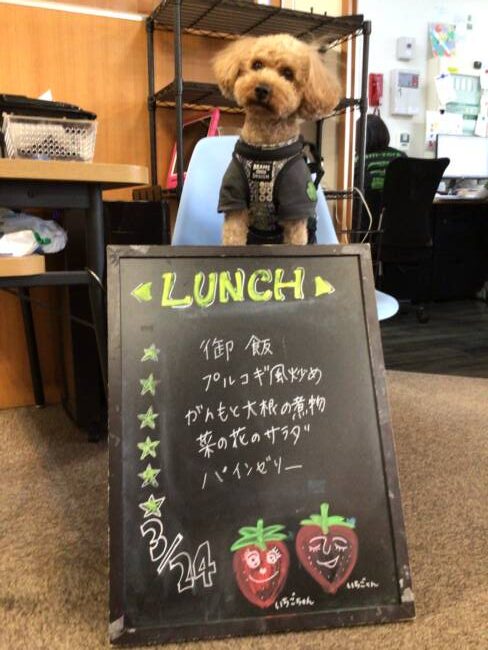 LUNCH
御飯
プルコギ風炒め
がんもと大根の煮物
菜の花のサラダ
パインゼリー
3/24
いちごちゃん
いちごくん